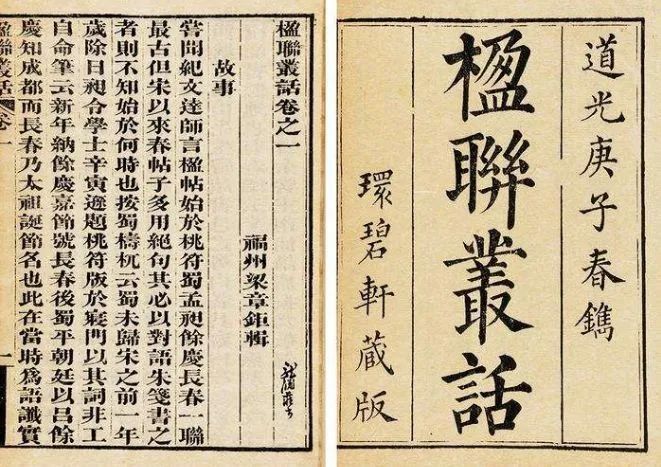 道光庚子春鐫
楹聯叢話
環碧軒藏版
楹聯叢話卷之一
福州梁章鉅輯
故事
嘗聞紀文達師言楹帖始於桃符蜀孟昶餘慶長春一聯
最古但宋以來春帖子多用絕句其必以對語朱箋書之
者則不知始於何時也按蜀檮杌云蜀未歸宋之前一年
歲除日昶令學士辛寅遜題桃符版於寢門以其詞非工
自命筆云新年納餘慶嘉節號長春後蜀平朝廷以呂餘
慶知成都而長春乃太祖誕節名也此在當時爲語讖實
楹聯叢話 卷一 一